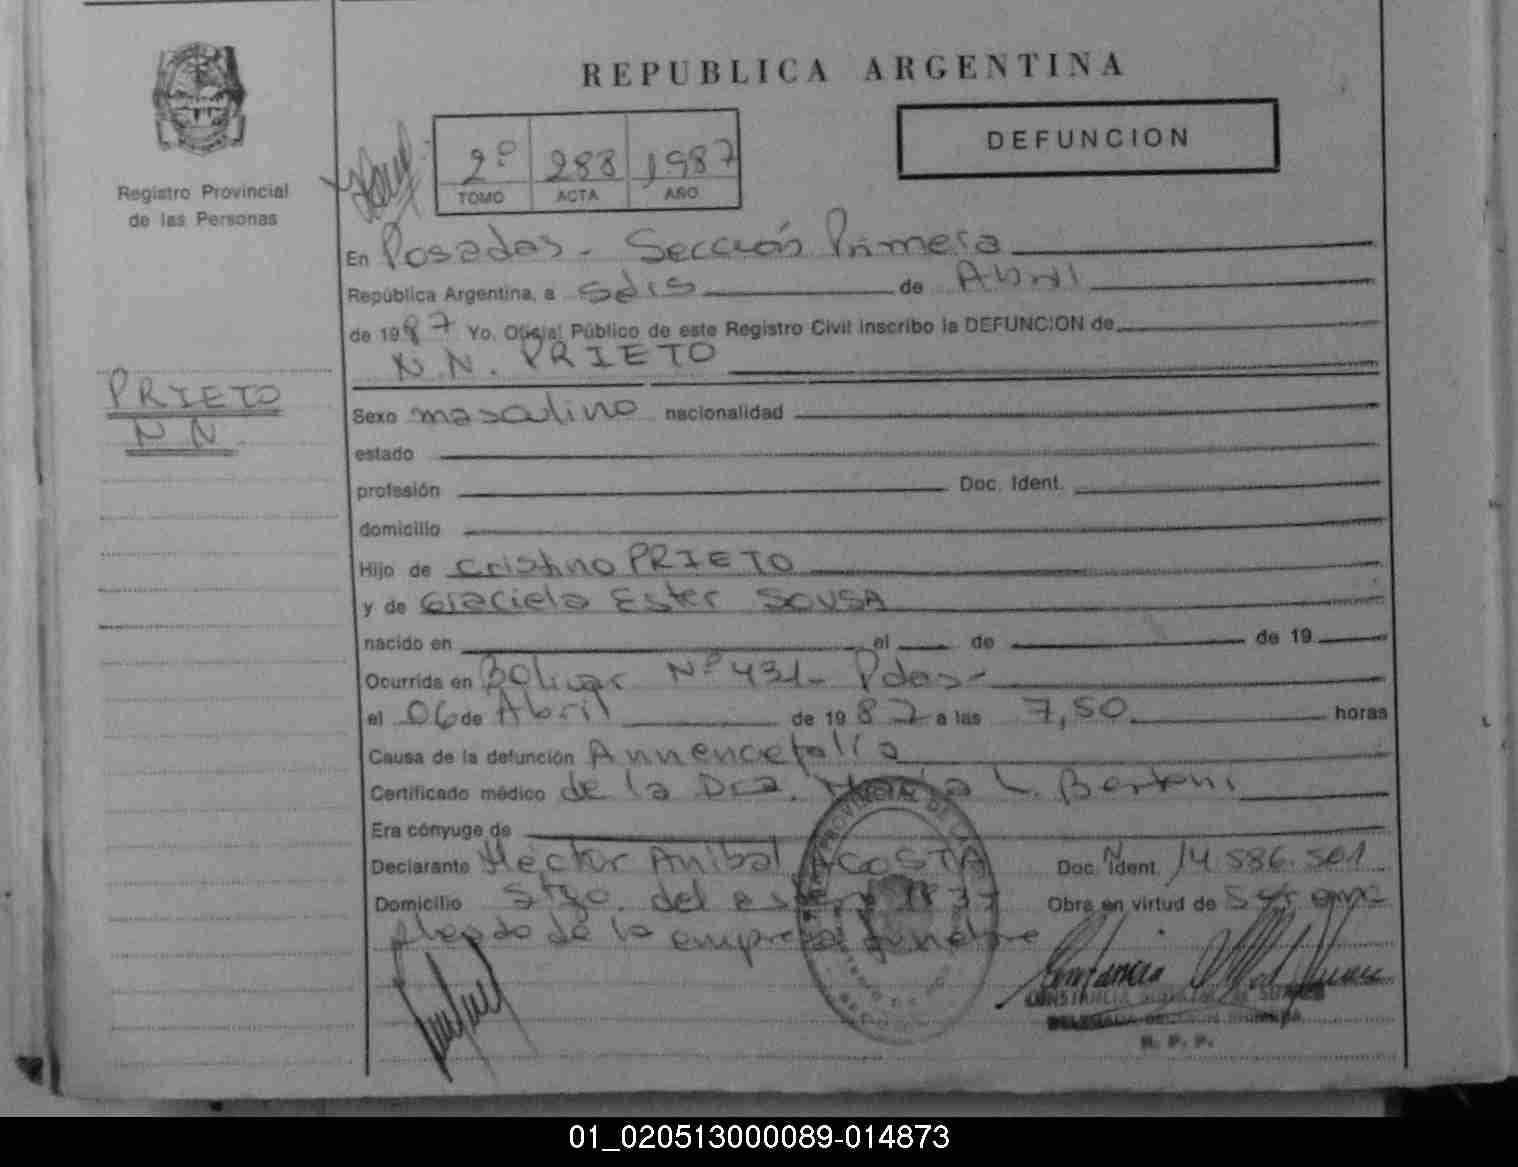 REPUBLICA ARGENTINA
DEFUNCION
Registro Provincial
de las Personas
2º 288 1987
TOMO ACTA AÑO
En Posadas - Sección Primera
República Argentina, a seis de Abril
de 1987 Yo, Oficial Público de este Registro Civil inscribo la DEFUNCION de
N.N. PRIETO
PRIETO
N N
Sexo masculino nacionalidad
estado
profesión Doc. Ident.
domicilio
Hijo de Cristino PRIETO
y de Graciela Ester SOUSA
nacido en el de de 19
Ocurrida en Bolivar Nº 431- Pdas-
el 06 de Abril de 1987 a las 7,50 horas
Causa de la defunción Annencefalia
Certificado médico de la Dra. María L. Bertoni
Era cónyuge de
Declarante Héctor Anibal ACOSTA Doc. Ident. 14.586.501
Domicilio Stgo. del estero 1837 Obra en virtud de ser empleado de la empresa funebre
DELEGADA SECCION PRIMERA
R. P. P.
01_020513000089-014873